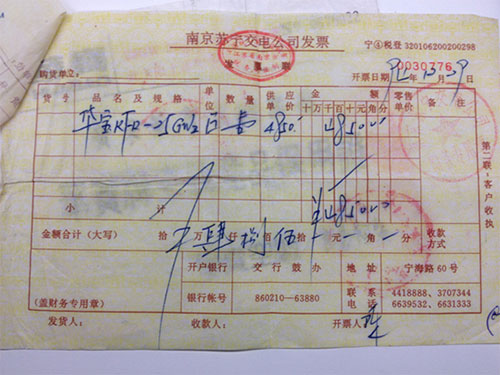 南京苏宁交电公司发票
宁④税登 320106200200298
发票联
0030776
购货单位： 开票日期 年 月 日
货号 品名及规格 单位 数量 供应单价 金额 十万千百十元角分 零售单价 备注
华宝KFR-25GW 4850 485000
小计 ¥485000
金额合计（大写） 拾 万 肆 仟 捌 佰 伍 拾 元 角 分 收款方式
开户银行 交行鼓办 地址 宁海路60号
银行帐号 860210-63880 联系电话 4418888、3707344 6639532、6631333
（盖财务专用章）
发货人： 收款人： 开票人：
第二联：客户收执